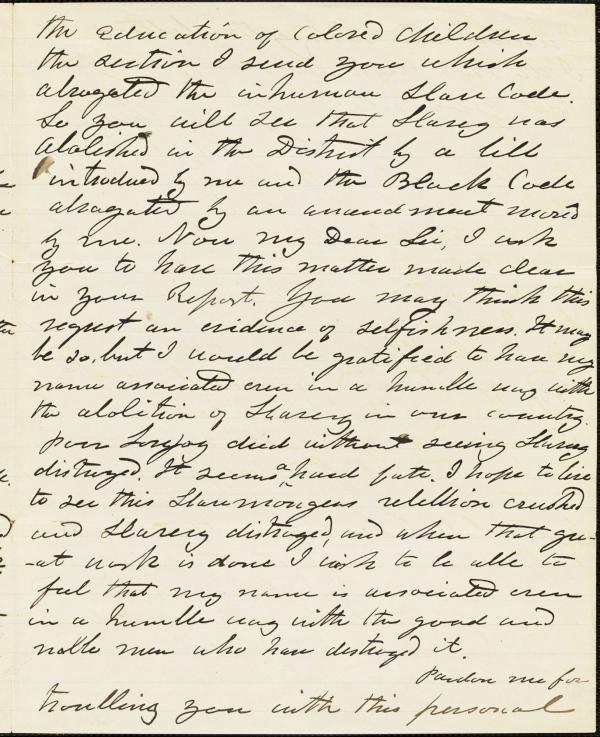 the education of Colored Children
the section I send you which
abrogated the inhuman Slave Code.
So you will see that Slavery was
abolished in the District by a bill
introdued by me and the Black Code
abrogated by an amendment moved
by me. Now my Dear Sir, I wish
you to have this matter made clear
in your Report. You may think this
request an evidence of selfishness. It may
be so, but I would be gratified to have my
name associated even in a humble way with
the abolition of Slavery in our country.
Poor Lovejoy died without seeing Slavery
distroyed. It seems a hard fate. I hope to live
to see this Slavemongers rebellion crushed
and Slavery distroyed, and when that gre-
-at work is done I wish to be able to
feel that my name is associated even
in a humble way with the good and
noble men who have destroyed it.
Pardon me for
troubling you with this personal